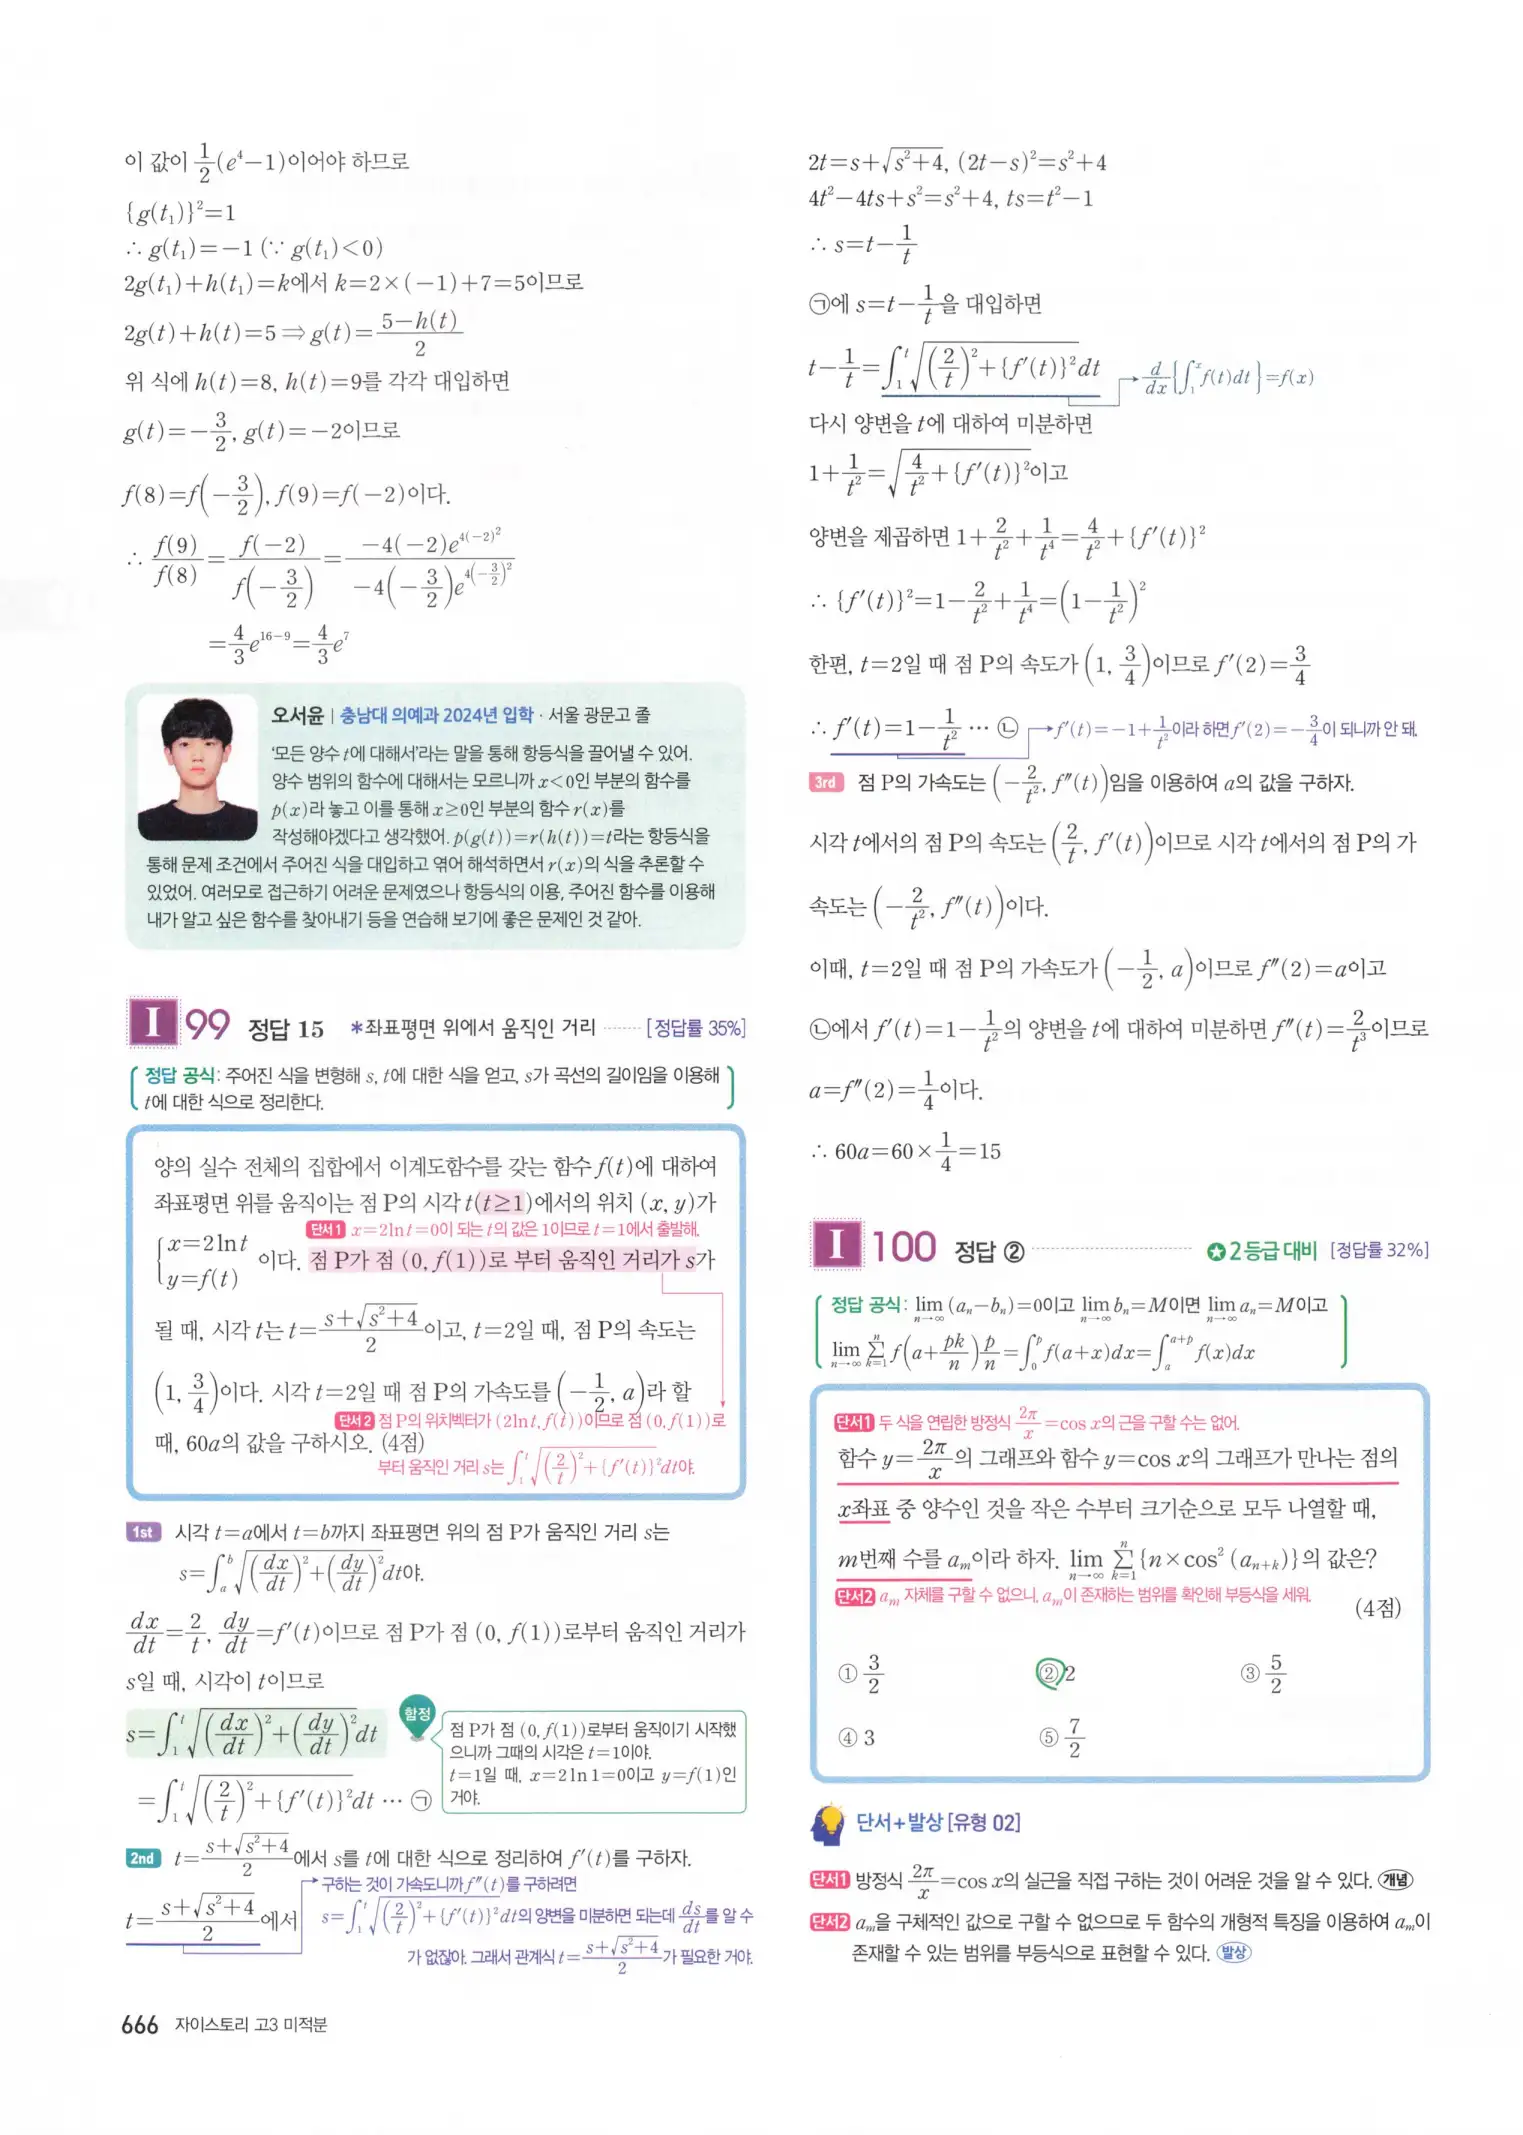 이 값이 \frac{1}{2}(e^4-1)이어야 하므로
{g(t_1)}^2=1
∴ g(t_1)=-1 (∵ g(t_1)<0)
2g(t_1)+h(t_1)=k에서 k=2×(-1)+7=5이므로
2g(t)+h(t)=5 ⟹ g(t)=\frac{5-h(t)}{2}
위 식에 h(t)=8, h(t)=9를 각각 대입하면
g(t)=-\frac{3}{2}, g(t)=-2이므로
f(8)=f(-\frac{3}{2}), f(9)=f(-2)이다.
∴ \frac{f(9)}{f(8)}=\frac{f(-2)}{f(-\frac{3}{2})}=\frac{-4(-2)e^{4(-2)^2}}{-4(-\frac{3}{2})e^{4(-\frac{3}{2})^2}}
=\frac{4}{3}e^{16-9}=\frac{4}{3}e^7
오서윤 | 충남대 의예과 2024년 입학 · 서울 광문고 졸
'모든 양수 t에 대해서'라는 말을 통해 항등식을 끌어낼 수 있어.
양수 범위의 함수에 대해서는 모르니까 x<0인 부분의 함수를
p(x)라 놓고 이를 통해 x≥0인 부분의 함수 r(x)를
작성해야겠다고 생각했어. p(g(t))=r(h(t))=t라는 항등식을
통해 문제 조건에서 주어진 식을 대입하고 엮어 해석하면서 r(x)의 식을 추론할 수
있었어. 여러모로 접근하기 어려운 문제였으나 항등식의 이용, 주어진 함수를 이용해
내가 알고 싶은 함수를 찾아내기 등을 연습해 보기에 좋은 문제인 것 같아.
I 99 정답 15 *좌표평면 위에서 움직인 거리 ······ [정답률 35%]
정답 공식: 주어진 식을 변형해 s, t에 대한 식을 얻고, s가 곡선의 길이임을 이용해
t에 대한 식으로 정리한다.
양의 실수 전체의 집합에서 이계도함수를 갖는 함수 f(t)에 대하여
좌표평면 위를 움직이는 점 P의 시각 t(t≥1)에서의 위치 (x, y)가
단서1 x=2ln t=0이 되는 t의 값은 1이므로 t=1에서 출발해.
{x=2ln t
y=f(t) 이다. 점 P가 점 (0, f(1))로 부터 움직인 거리가 s가
될 때, 시각 t는 t=\frac{s+\sqrt{s^2+4}}{2}이고, t=2일 때, 점 P의 속도는
(1, \frac{3}{4})이다. 시각 t=2일 때 점 P의 가속도를 (-\frac{1}{2}, a)라 할
단서2 점 P의 위치벡터가 (2ln t, f(t))이므로 점 (0, f(1))로
때, 60a의 값을 구하시오. (4점)
부터 움직인 거리 s는 ∫_1^t \sqrt{(\frac{2}{t})^2+{f'(t)}^2}dt야.
1st 시각 t=a에서 t=b까지 좌표평면 위의 점 P가 움직인 거리 s는
s=∫_a^b \sqrt{(\frac{dx}{dt})^2+(\frac{dy}{dt})^2}dt야.
\frac{dx}{dt}=\frac{2}{t}, \frac{dy}{dt}=f'(t)이므로 점 P가 점 (0, f(1))로부터 움직인 거리가
s일 때, 시각이 t이므로
s=∫_1^t \sqrt{(\frac{dx}{dt})^2+(\frac{dy}{dt})^2}dt
=∫_1^t \sqrt{(\frac{2}{t})^2+{f'(t)}^2}dt ··· ㉠
함정
점 P가 점 (0, f(1))로부터 움직이기 시작했
으니까 그때의 시각은 t=1이야.
t=1일 때, x=2ln 1=0이고 y=f(1)인
거야.
2nd t=\frac{s+\sqrt{s^2+4}}{2}에서 s를 t에 대한 식으로 정리하여 f'(t)를 구하자.
t=\frac{s+\sqrt{s^2+4}}{2}에서
구하는 것이 가속도니까 f''(t)를 구하려면
s=∫_1^t \sqrt{(\frac{2}{t})^2+{f'(t)}^2}dt의 양변을 미분하면 되는데 \frac{ds}{dt}를 알 수
가 없잖아. 그래서 관계식 t=\frac{s+\sqrt{s^2+4}}{2}가 필요한 거야.
666 자이스토리 고3 미적분
2t=s+\sqrt{s^2+4}, (2t-s)^2=s^2+4
4t^2-4ts+s^2=s^2+4, ts=t^2-1
∴ s=t-\frac{1}{t}
㉠에 s=t-\frac{1}{t}을 대입하면
t-\frac{1}{t}=∫_1^t \sqrt{(\frac{2}{t})^2+{f'(t)}^2}dt → \frac{d}{dx}{∫_1^x f(t)dt}=f(x)
다시 양변을 t에 대하여 미분하면
1+\frac{1}{t^2}=\sqrt{\frac{4}{t^2}+{f'(t)}^2}이고
양변을 제곱하면 1+\frac{2}{t^2}+\frac{1}{t^4}=\frac{4}{t^2}+{f'(t)}^2
∴ {f'(t)}^2=1-\frac{2}{t^2}+\frac{1}{t^4}=(1-\frac{1}{t^2})^2
한편, t=2일 때 점 P의 속도가 (1, \frac{3}{4})이므로 f'(2)=\frac{3}{4}
∴ f'(t)=1-\frac{1}{t^2} ··· ㉡ → f'(t)=-1+\frac{1}{t^2}이라 하면 f'(2)=-\frac{3}{4}이 되니까 안 돼.
3rd 점 P의 가속도는 (-\frac{2}{t^2}, f''(t))임을 이용하여 a의 값을 구하자.
시각 t에서의 점 P의 속도는 (\frac{2}{t}, f'(t))이므로 시각 t에서의 점 P의 가
속도는 (-\frac{2}{t^2}, f''(t))이다.
이때, t=2일 때 점 P의 가속도가 (-\frac{1}{2}, a)이므로 f''(2)=a이고
㉡에서 f'(t)=1-\frac{1}{t^2}의 양변을 t에 대하여 미분하면 f''(t)=\frac{2}{t^3}이므로
a=f''(2)=\frac{1}{4}이다.
∴ 60a=60×\frac{1}{4}=15
I 100 정답 ② ······ ✪2등급 대비 [정답률 32%]
정답 공식: \lim_{n→∞}(a_n-b_n)=0이고 \lim_{n→∞}b_n=M이면 \lim_{n→∞}a_n=M이고
\lim_{n→∞}\sum_{k=1}^{n}f(a+\frac{pk}{n})\frac{p}{n}=∫_0^p f(a+x)dx=∫_a^{a+p} f(x)dx
단서1 두 식을 연립한 방정식 \frac{2π}{x}=cos x의 근을 구할 수는 없어.
함수 y=\frac{2π}{x}의 그래프와 함수 y=cos x의 그래프가 만나는 점의
x좌표 중 양수인 것을 작은 수부터 크기순으로 모두 나열할 때,
m번째 수를 a_m이라 하자. \lim_{n→∞}\sum_{k=1}^{n}{n×cos^2(a_{n+k})}의 값은?
단서2 a_m 자체를 구할 수 없으니, a_m이 존재하는 범위를 확인해 부등식을 세워.
(4점)
① \frac{3}{2} ② 2 ③ \frac{5}{2}
④ 3 ⑤ \frac{7}{2}
단서+발상 [유형 02]
단서1 방정식 \frac{2π}{x}=cos x의 실근을 직접 구하는 것이 어려운 것을 알 수 있다. 개념
단서2 a_m을 구체적인 값으로 구할 수 없으므로 두 함수의 개형적 특징을 이용하여 a_m이
존재할 수 있는 범위를 부등식으로 표현할 수 있다. 발상